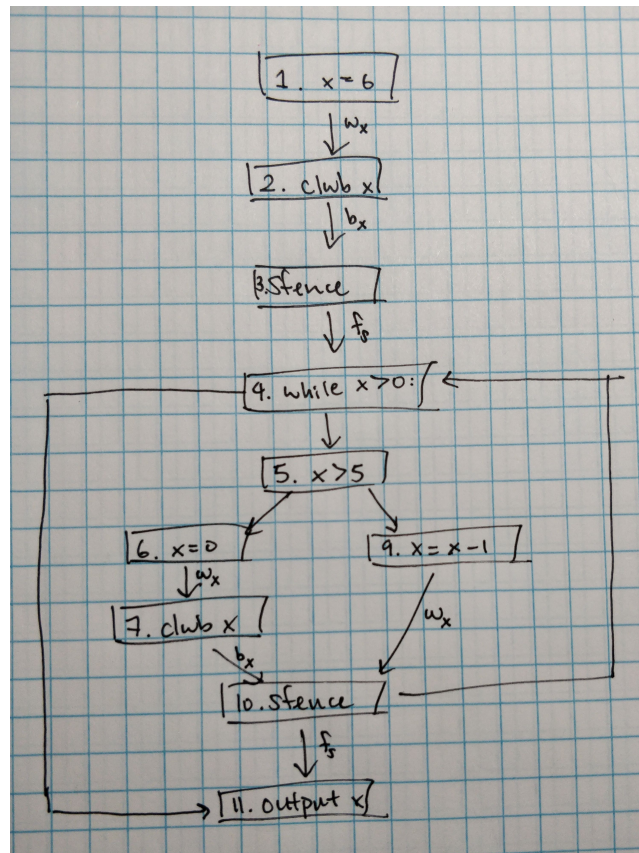 1. x = 6
w_x
2. clwb x
b_x
3. sfence
f_s
4. while x > 0:
5. x > 5
6. x = 0
9. x = x - 1
w_x
7. clwb x
w_x
b_x
10. sfence
f_s
11. output x